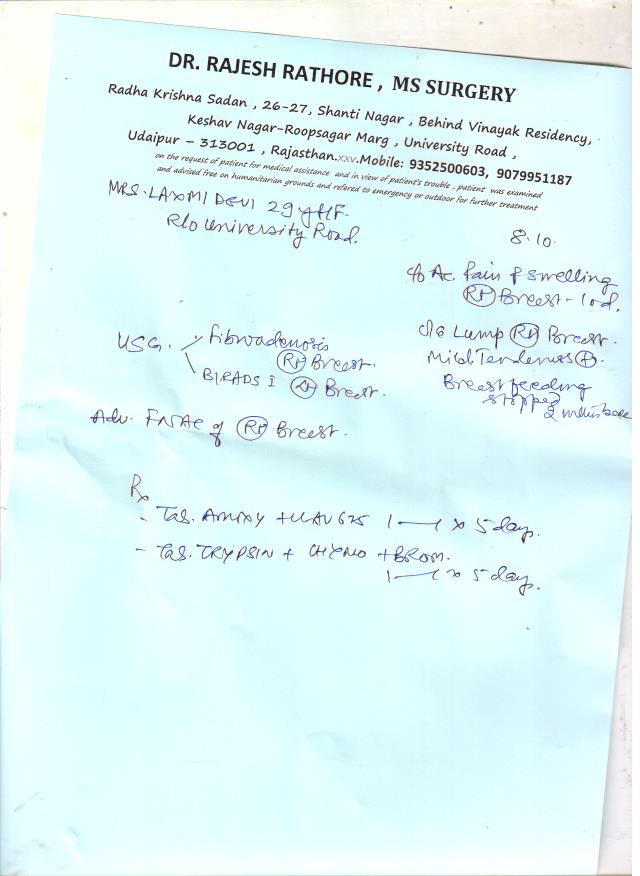 DR. RAJESH RATHORE , MS SURGERY
Radha Krishna Sadan , 26-27, Shanti Nagar , Behind Vinayak Residency,
Keshav Nagar-Roopsagar Marg , University Road ,
Udaipur – 313001 , Rajasthan.xxv.Mobile: 9352500603, 9079951187
on the request of patient for medical assistance and in view of patient's trouble , patient was examined
and advised free on humanitarian grounds and refered to emergency or outdoor for further treatment
MRS. LAXMI DEVI 29 y/F.
R/o University Road.
8.10.
c/o Ac. Pain & swelling
Rt Breast - 10d.
USG. Fibroadenosis
Rt Breast.
BIRADS I Breast.
O/E Lump Rt Breast.
Mild Tenderness +.
Breast feeding
stopped
2 mths back
Adv. FNAC of Rt Breast.
Rx
- Tab. AMOXY + CLAV 625 1—1 x 5 day.
- Tab. TRYPSIN + CHYMO + BROM.
1—1 x 5 day.